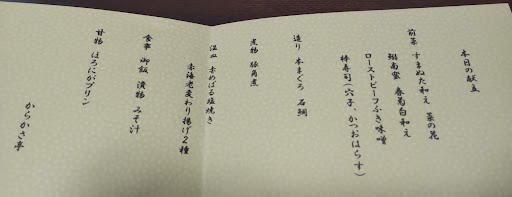 本日の献立
前菜 すまぬた和え 菜の花
鰯南蛮 春菊白和え
ローストビーフふき味噌
棒寿司(穴子、かつおはらす)
造り 本まぐろ 石鯛
煮物 豚角煮
温皿 赤めばる塩焼き
赤海老変わり揚げ2種
食事 御飯 漬物 みそ汁
甘物 ばろにがプリン
からかさ亭